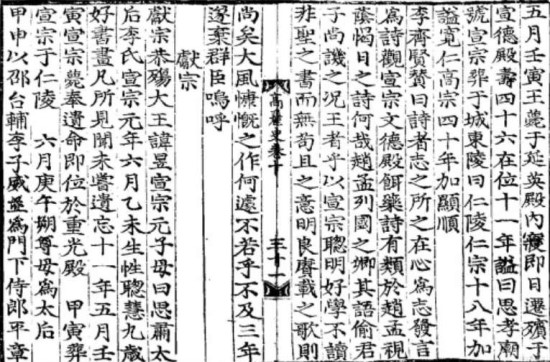 五月壬寅王薨于延英殿內寢即日遷殯于
宣德殿壽四十六在位十一年謚曰思孝廟
號宣宗葬于城東陵曰仁陵仁宗十八年加
謚寬仁高宗四十年加顯順
李齊賢贊曰詩者志之所之在心爲志發言
爲詩觀宣宗文德殿餌藥詩有類於趙孟視
蔭愒日之詩何哉趙孟列國之卿其語偷君
子尚譏之况王者乎以宣宗聰明好學不讀
非聖之書而無苟且之意明良賡載之歌則
高麗史卷十 三十一
尚矣大風慷慨之作何遽不若乎不及三年
遂棄群臣嗚呼
獻宗
獻宗恭殤大王諱昱宣宗元子母曰思肅太
后李氏宣宗元年六月乙未生性聰慧九歲
好書畫凡所見聞未嘗遺忘十一年五月壬
寅宣宗薨奉遺命即位於重光殿 甲寅葬
宣宗于仁陵 六月庚午朔尊母爲太后
甲申以邵台輔李子威並爲門下侍郎平章